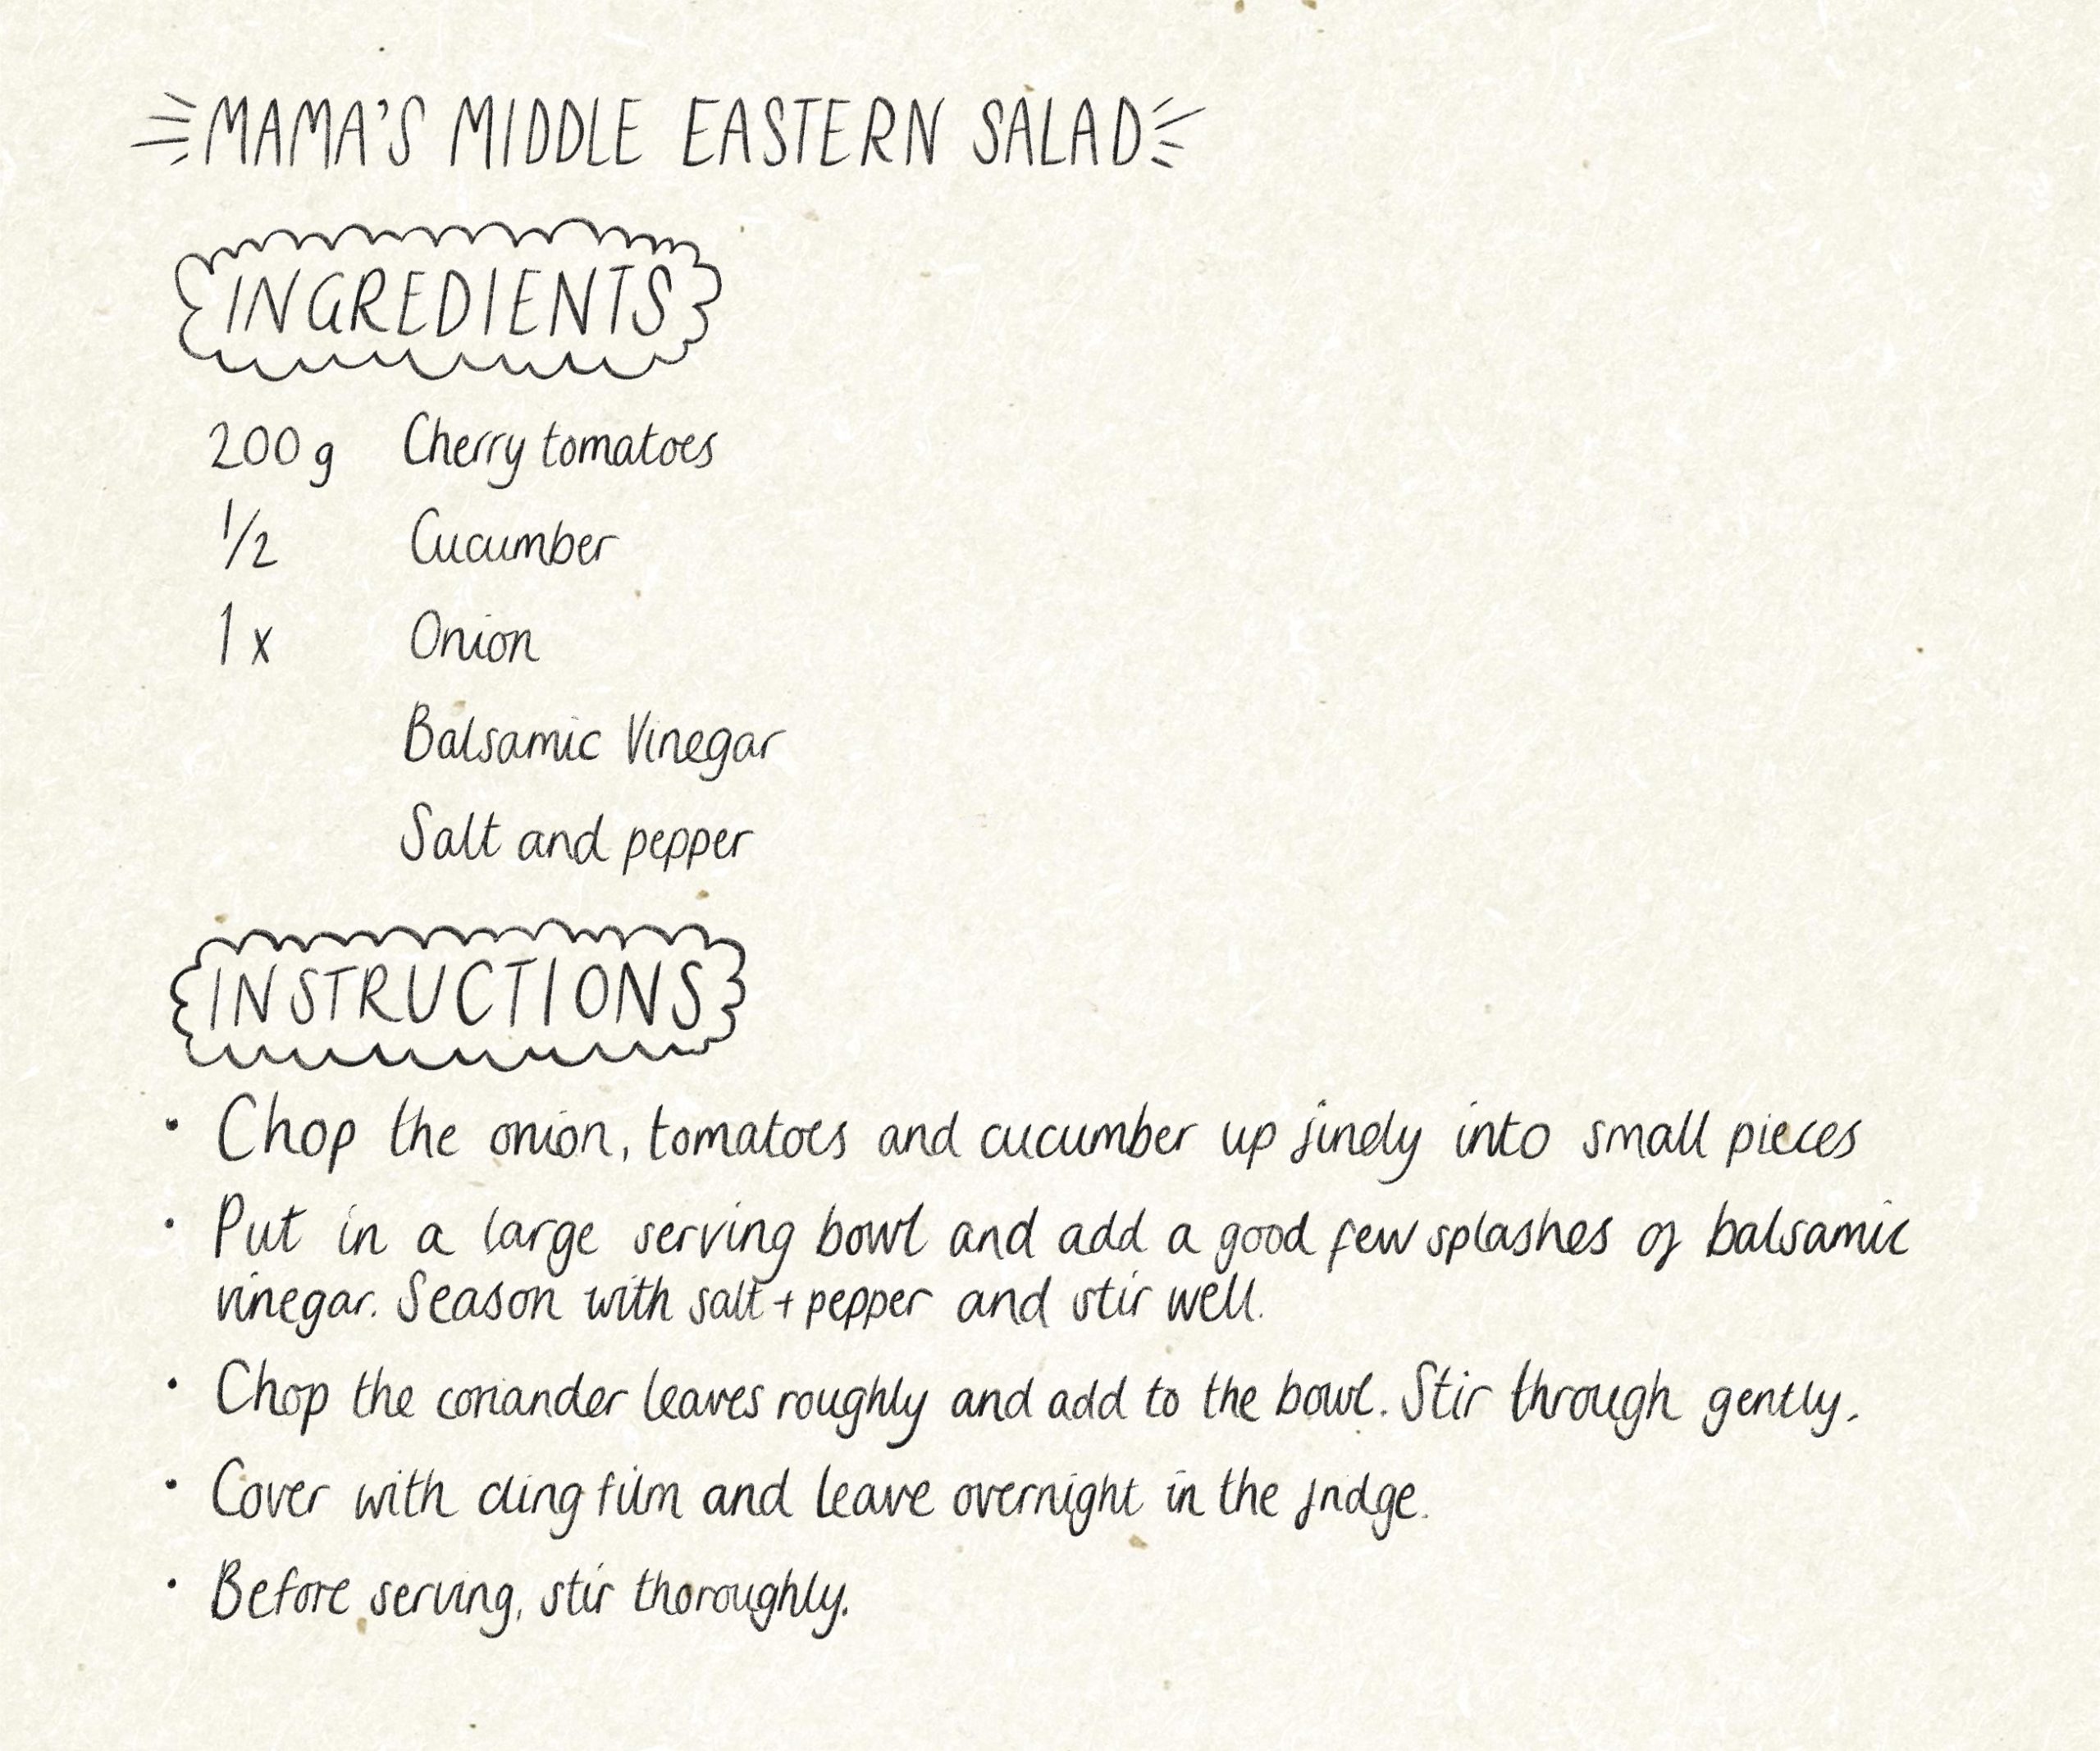 MAMA'S MIDDLE EASTERN SALAD
INGREDIENTS
200 g Cherry tomatoes
1/2 Cucumber
1 x Onion
Balsamic Vinegar
Salt and pepper
INSTRUCTIONS
• Chop the onion, tomatoes and cucumber up finely into small pieces
• Put in a large serving bowl and add a good few splashes of balsamic
vinegar. Season with salt + pepper and stir well.
• Chop the coriander leaves roughly and add to the bowl. Stir through gently.
• Cover with cling film and leave overnight in the fridge.
• Before serving, stir thoroughly.